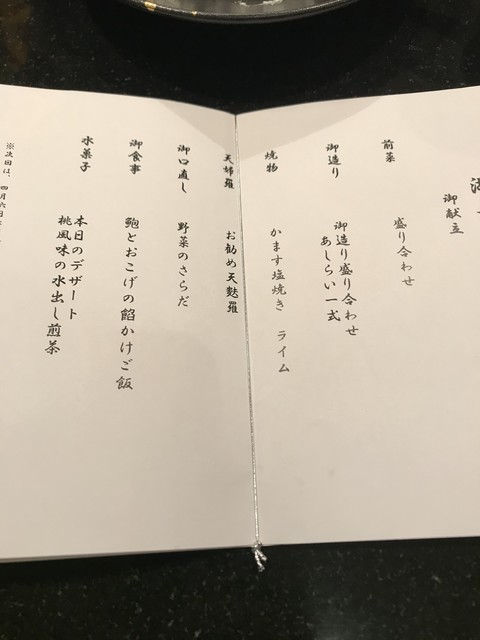 御献立
前菜
盛り合わせ
御造り
御造り盛り合わせ
あしらい一式
焼物
かます塩焼き ライム
天婦羅
お勧め天麩羅
御口直し
野菜のさらだ
御食事
鮑とおこげの餡かけご飯
水菓子
本日のデザート
桃風味の水出し煎茶
※次回は、四月六日